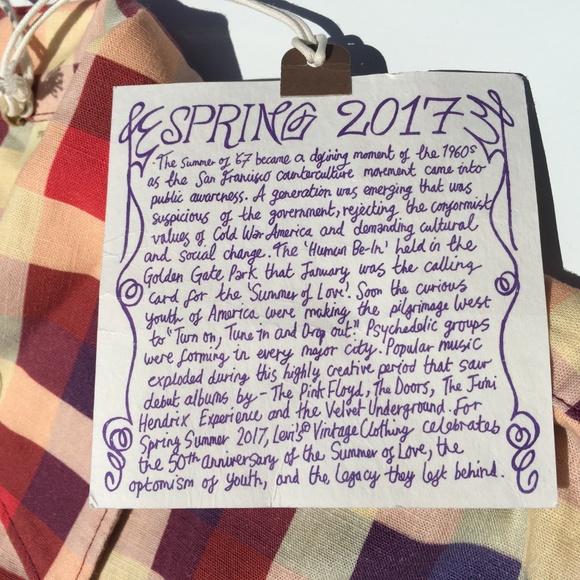 SPRING 2017
The Summer of '67 became a defining moment of the 1960s
as the San Francisco counterculture movement came into
public awareness. A generation was emerging that was
suspicious of the government, rejecting the conformist
values of Cold War America and demanding cultural
and social change. The 'Human Be-In' held in the
Golden Gate Park that January was the calling
card for the 'Summer of Love'. Soon the curious
youth of America were making the pilgrimage West
to "Turn on, Tune in and Drop out". Psychedelic groups
were forming in every major city. Popular music
exploded during this highly creative period that saw
debut albums by - The Pink Floyd, The Doors, The Jimi
Hendrix Experience and the Velvet Underground. For
Spring Summer 2017, Levi's® Vintage Clothing celebrates
the 50th anniversary of the Summer of Love, the
optomism of youth, and the legacy they left behind.